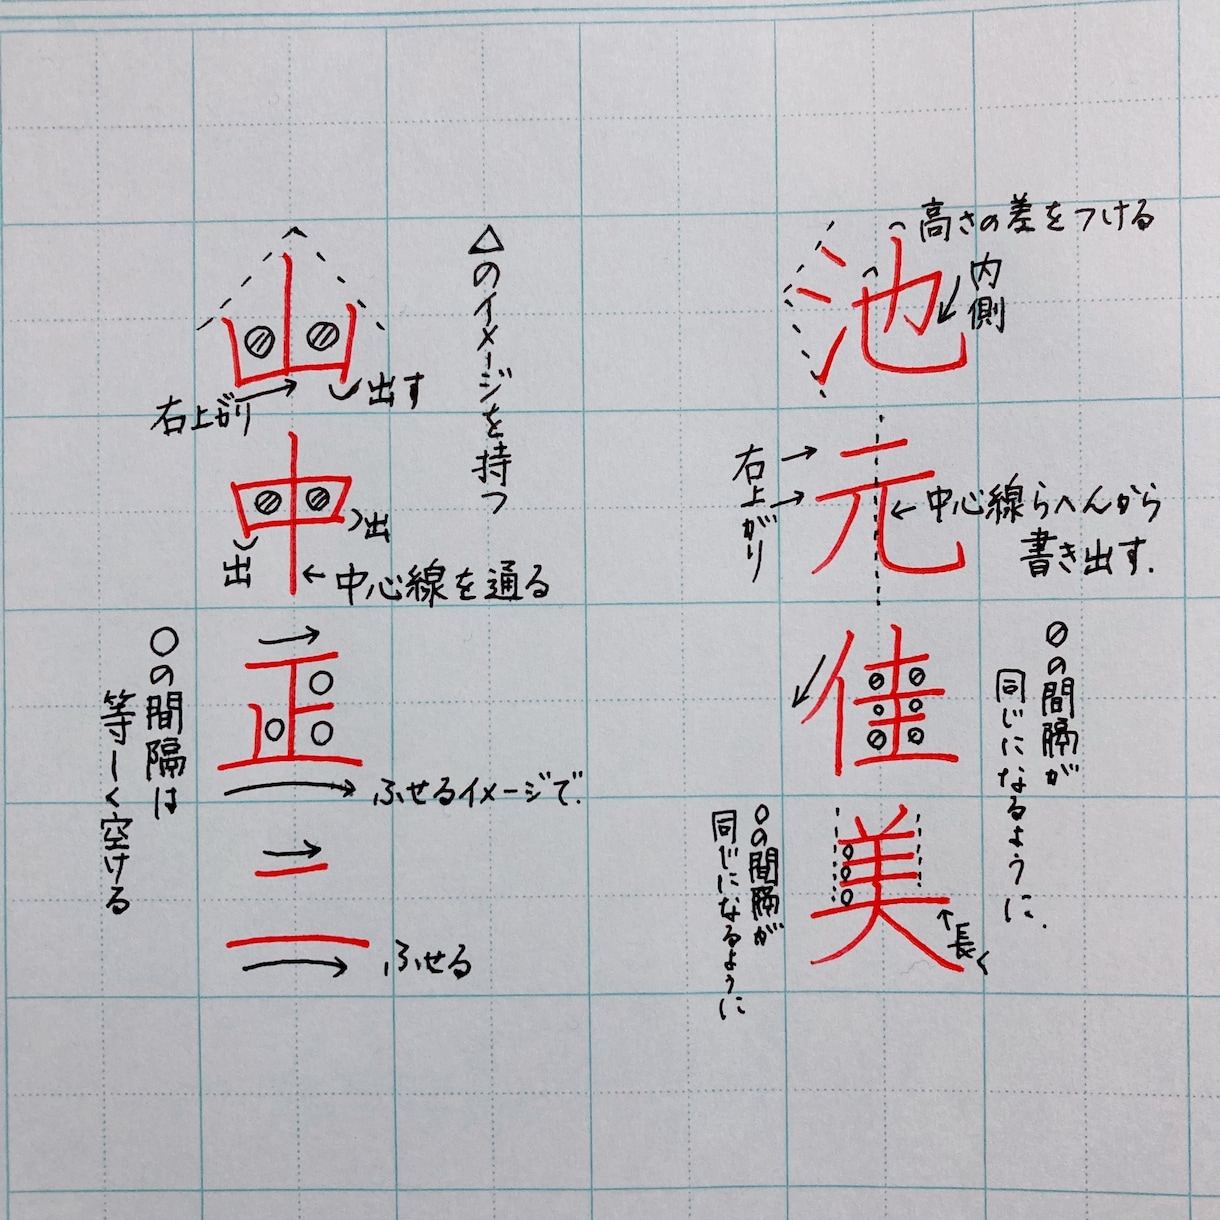 池
高さの差をつける
内側
元
右上がり
中心線らへんから
書き出す.
佳
〇の間隔が
同じになるように.
美
〇の間隔が
同じになるように
長く
山
△のイメージを持つ
右上がり
出す
中
出
出
中心線を通る
正
〇の間隔は
等しく空ける
ふせるイメージで.
二
ふせる